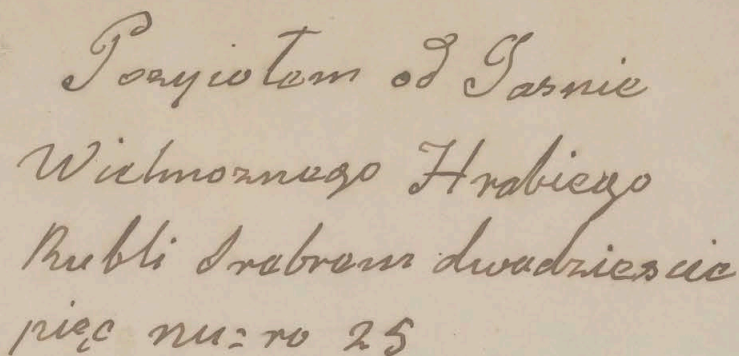 Pozyiołem od Jasnie
Wielmoznego Hrabiego
Rubli Srebrem dwadziescie
pięc nu=ro 25